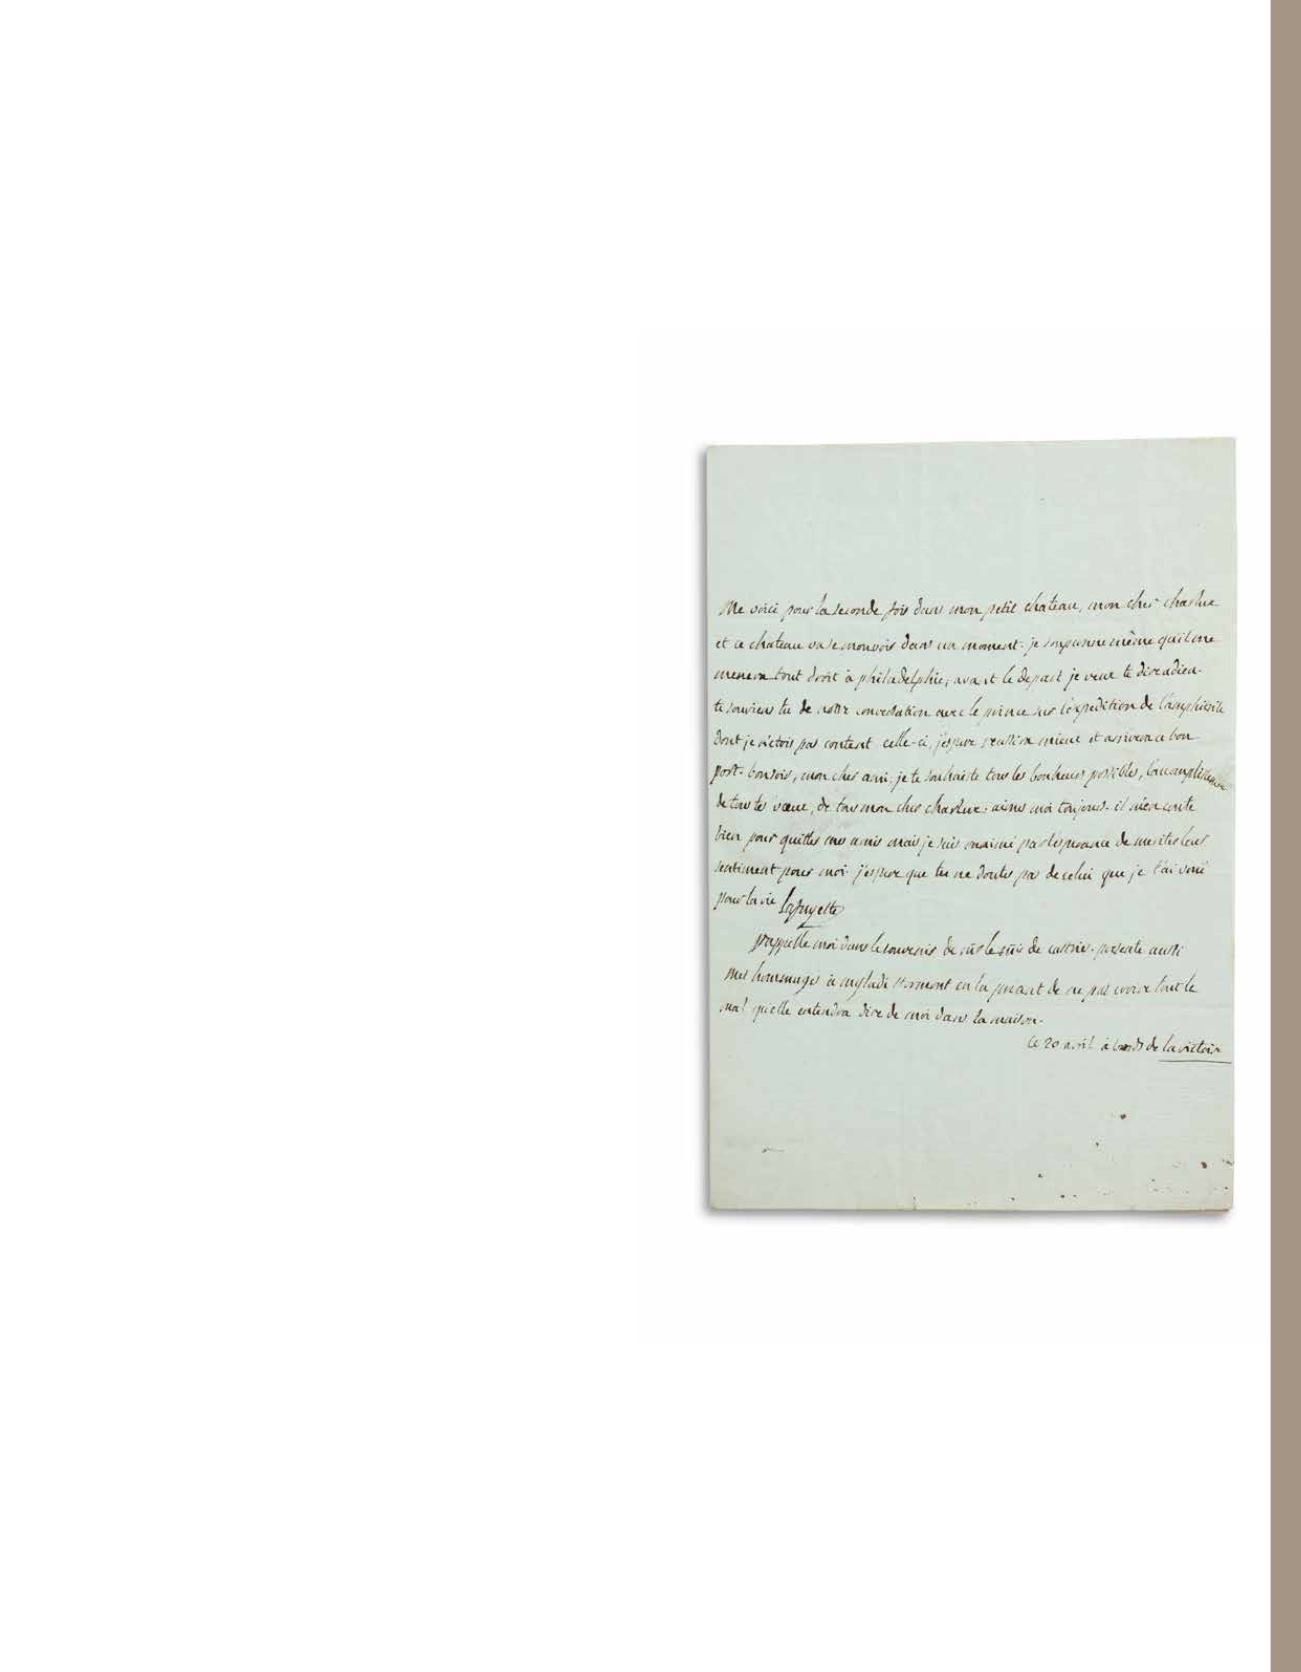 Me voici pour la seconde fois dans mon petit chateau, mon cher charlue
et ce chateau va se mouvoir dans un moment. je soupçonne même qu'il me
menera tout droit à philadelphie, avant le depart je veux te dire adieu.
te souviens tu de notre conversation avec le prince sur l'expedition de l'amphitrite
dont je n'etois pas content celle-ci, j'espere reussira mieux et arrivera a bon
port. bonsoir, mon cher ami. je te souhaite tous les bonheurs possibles, l'accomplissement
de tous tes vœux, de tous mon cher charlue. aime moi toujours. il m'en coute
bien pour quitter mes amis mais je suis ranimé par l'esperance de meriter leur
sentiment pour moi. j'espere que tu ne doutes pas de celui que je t'ai voué
pour la vie Lafayette
rappelle moi dans le souvenir de de castries. presente aussi
mes hommages à myladi stormont en la priant de ne pas croire tout le
mal qu'elle entendra dire de moi dans la maison.
ce 20 avril à bord de la victoire